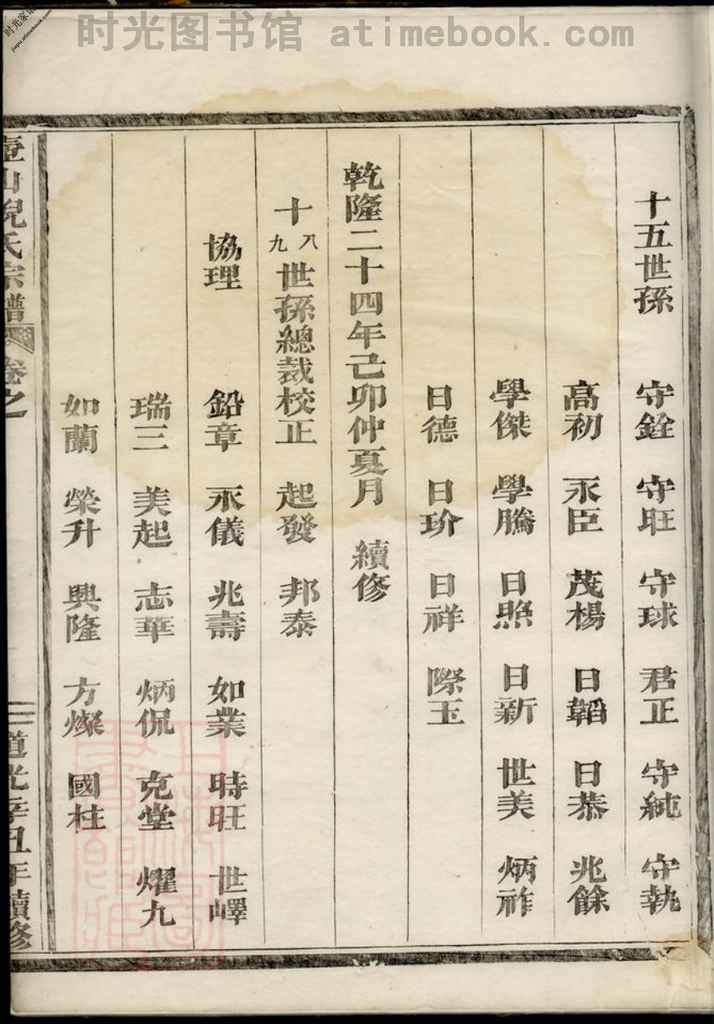 时光图书馆 atimebook.com
十五世孫 守銓 守旺 守球 君正 守純 守執
高初 永臣 茂楊 日韜 日恭 兆餘
學傑 學騰 日照 日新 世美 炳祚
日德 日玠 日祥 際玉
乾隆二十四年己卯仲夏月 續修
十八九世孫總裁校正 起發 邦泰
協理 鉛章 永儀 兆壽 如業 時旺 世嶧
瑞三 美起 志華 炳侃 克堂 燿九
如蘭 榮升 興隆 方燦 國柱
壺山倪氏宗譜 卷之一 道光辛丑年續修